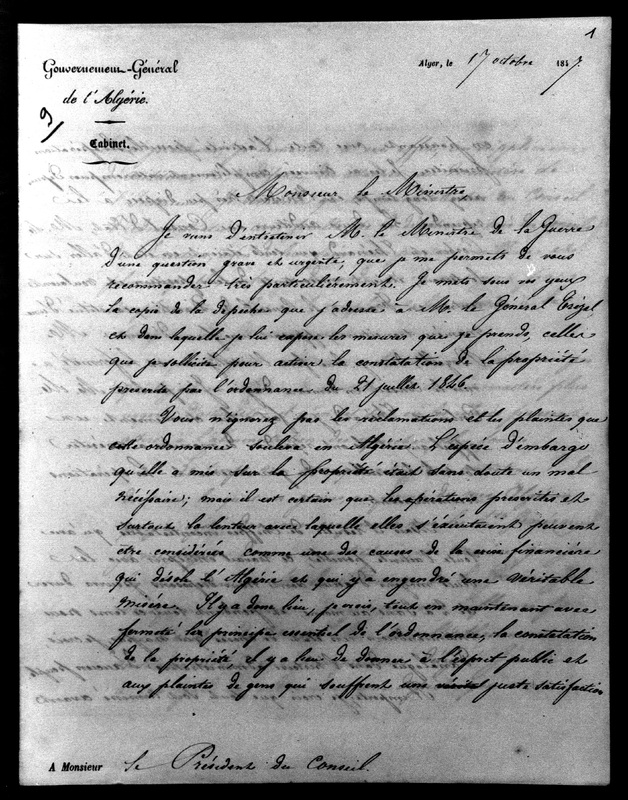 1
Gouvernement-Général
de l'Algérie.
Cabinet.
Alger, le 17 octobre 1847.
Monsieur le Ministre,
Je viens d'entretenir M. le Ministre de la Guerre
d'une question grave et urgente, que je me permets de vous
recommander très particulièrement. Je mets sous vos yeux
la copie de la dépêche que j'adresse à M. le Général Trézel
et dans laquelle je lui expose les mesures que je prends, celles
que je sollicite pour activer la constatation de la propriété
prescrite par l'ordonnance du 21 juillet 1846.
Vous n'ignorez pas les réclamations et les plaintes que
cette ordonnance soulève en Algérie. L'espèce d'embargo
qu'elle a mis sur la propriété était sans doute un mal
nécessaire; mais il est certain que les opérations prescrites et
surtout la lenteur avec laquelle elles s'exécutaient peuvent
être considérées comme une des causes de la crise financière
qui désole l'Algérie et qui y a engendré une véritable
misère. Il y a donc lieu, je crois, tout en maintenant avec
fermeté le principe essentiel de l'ordonnance, la constatation
de la propriété il y a lieu de donner à l'esprit public et
aux plaintes de gens qui souffrent une juste satisfaction
A Monsieur le Président du Conseil.